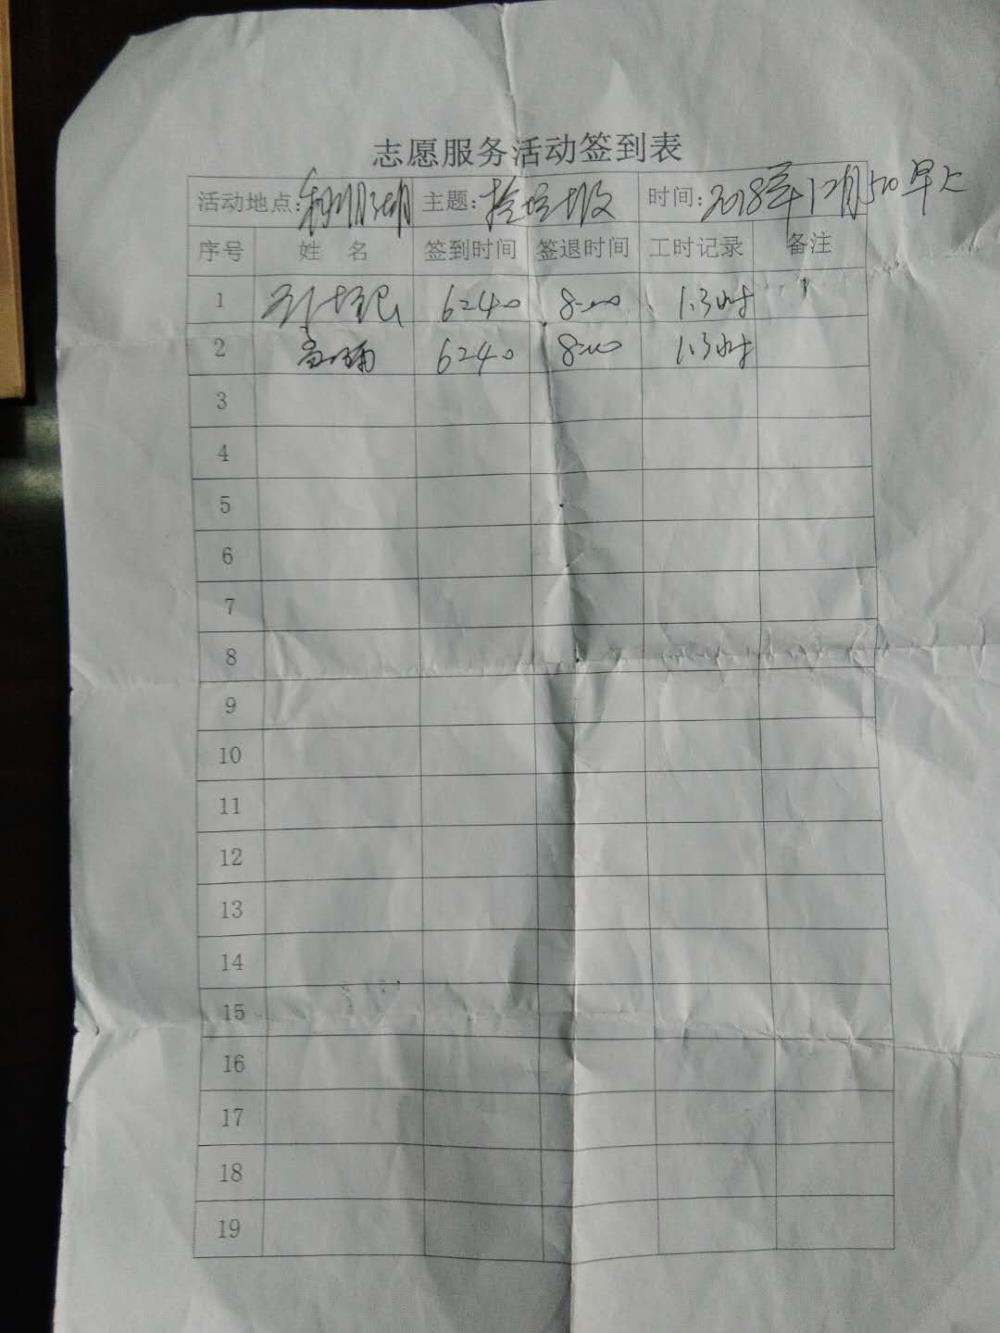 志愿服务活动签到表
活动地点: 主题:捡垃圾 时间:2018年12月50早上
序号 姓 名 签到时间 签退时间 工时记录 备注
1 6:40 8:00 1.3小时
2 6:40 8:00 1.3小时
3
4
5
6
7
8
9
10
11
12
13
14
15
16
17
18
19